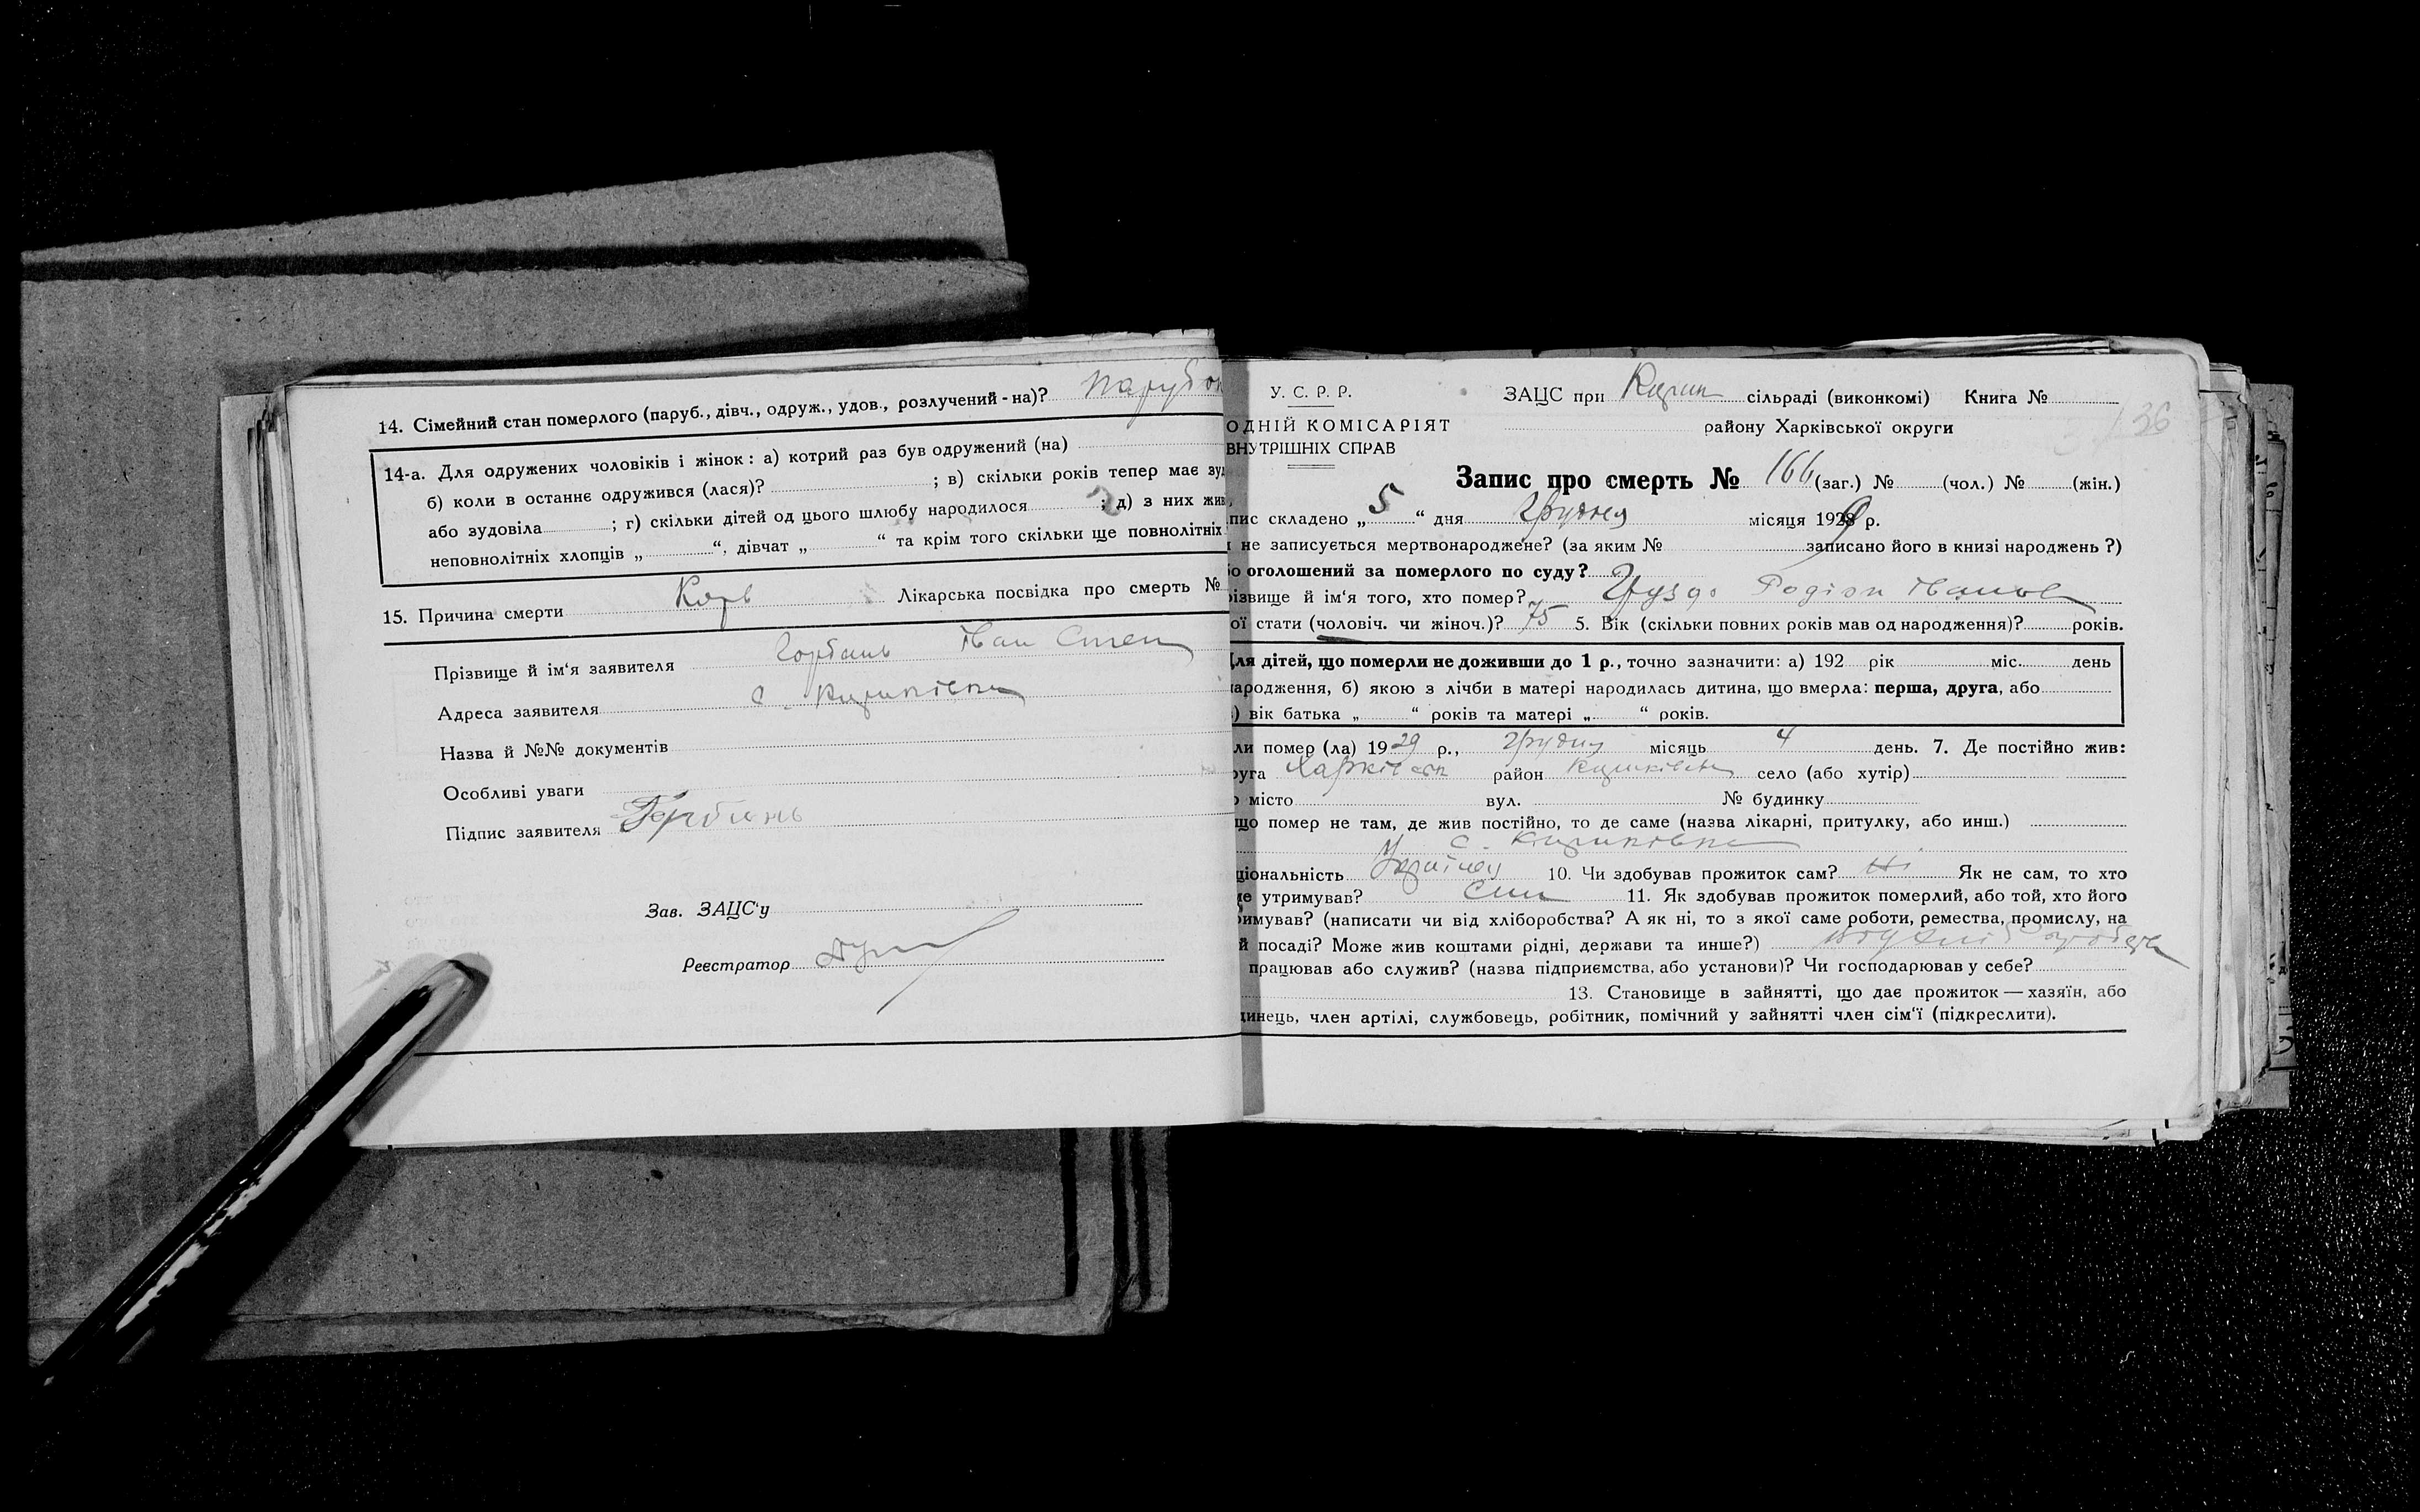 14. Сімейний стан померлого (паруб., дівч., одруж., удов., розлучений - на)? Парубок
14-а. Для одружених чоловіків і жінок: а) котрий раз був одружений (на)
б) коли в останнє одружився (лася)? ; в) скільки років тепер має
або зудовіла ; г) скільки дітей од цього шлюбу народилося ; д) з них жив
неповнолітніх хлопців „ “, дівчат „ “ та крім того скільки ще повнолітніх
15. Причина смерти Корь Лікарська посвідка про смерть №
Прізвище й ім'я заявителя Горбань Іван Степ
Адреса заявителя с.
Назва й №№ документів
Особливі уваги
Підпис заявителя Горбань
Зав. ЗАЦС'у
Реєстратор
У. С. Р. Р.
ОДНІЙ КОМІСАРІЯТ
ВНУТРІШНІХ СПРАВ
ЗАЦС при сільраді (виконкомі) Книга №
району Харківської округи
136
Запис про смерть № 166 (заг.) № (чол.) № (жін.)
пис складено „ 5 “ дня Грудня місяця 1929 р.
не записується мертвонароджене? (за яким № записано його в книзі народжень ?)
о оголошений за померлого по суду?
ізвище й ім'я того, хто помер? Родіон Іванов
ої стати (чоловіч. чи жіноч.)? 75 5. Вік (скільки повних років мав од народження)? років.
Для дітей, що померли не доживши до 1 р., точно зазначити: а) 192 рік міс. день
народження, б) якою з лічби в матері народилась дитина, що вмерла: перша, друга, або
) вік батька „ “ років та матері „ “ років.
ли помер (ла) 1929 р., Грудня місяць 4 день. 7. Де постійно жив:
руга Харківськ район село (або хутір)
о місто вул. № будинку
що помер не там, де жив постійно, то де саме (назва лікарні, притулку, або инш.)
с.
ціональність Україн 10. Чи здобував прожиток сам? Ні Як не сам, то хто
е утримував? Син 11. Як здобував прожиток померлий, або той, хто його
имував? (написати чи від хліборобства? А як ні, то з якої саме роботи, ремества, промислу, на
й посаді? Може жив коштами рідні, держави та инше?)
працював або служив? (назва підприємства, або установи)? Чи господарював у себе?
13. Становище в зайнятті, що дає прожиток — хазяїн, або
динець, член артілі, службовець, робітник, помічний у зайнятті член сім'ї (підкреслити).